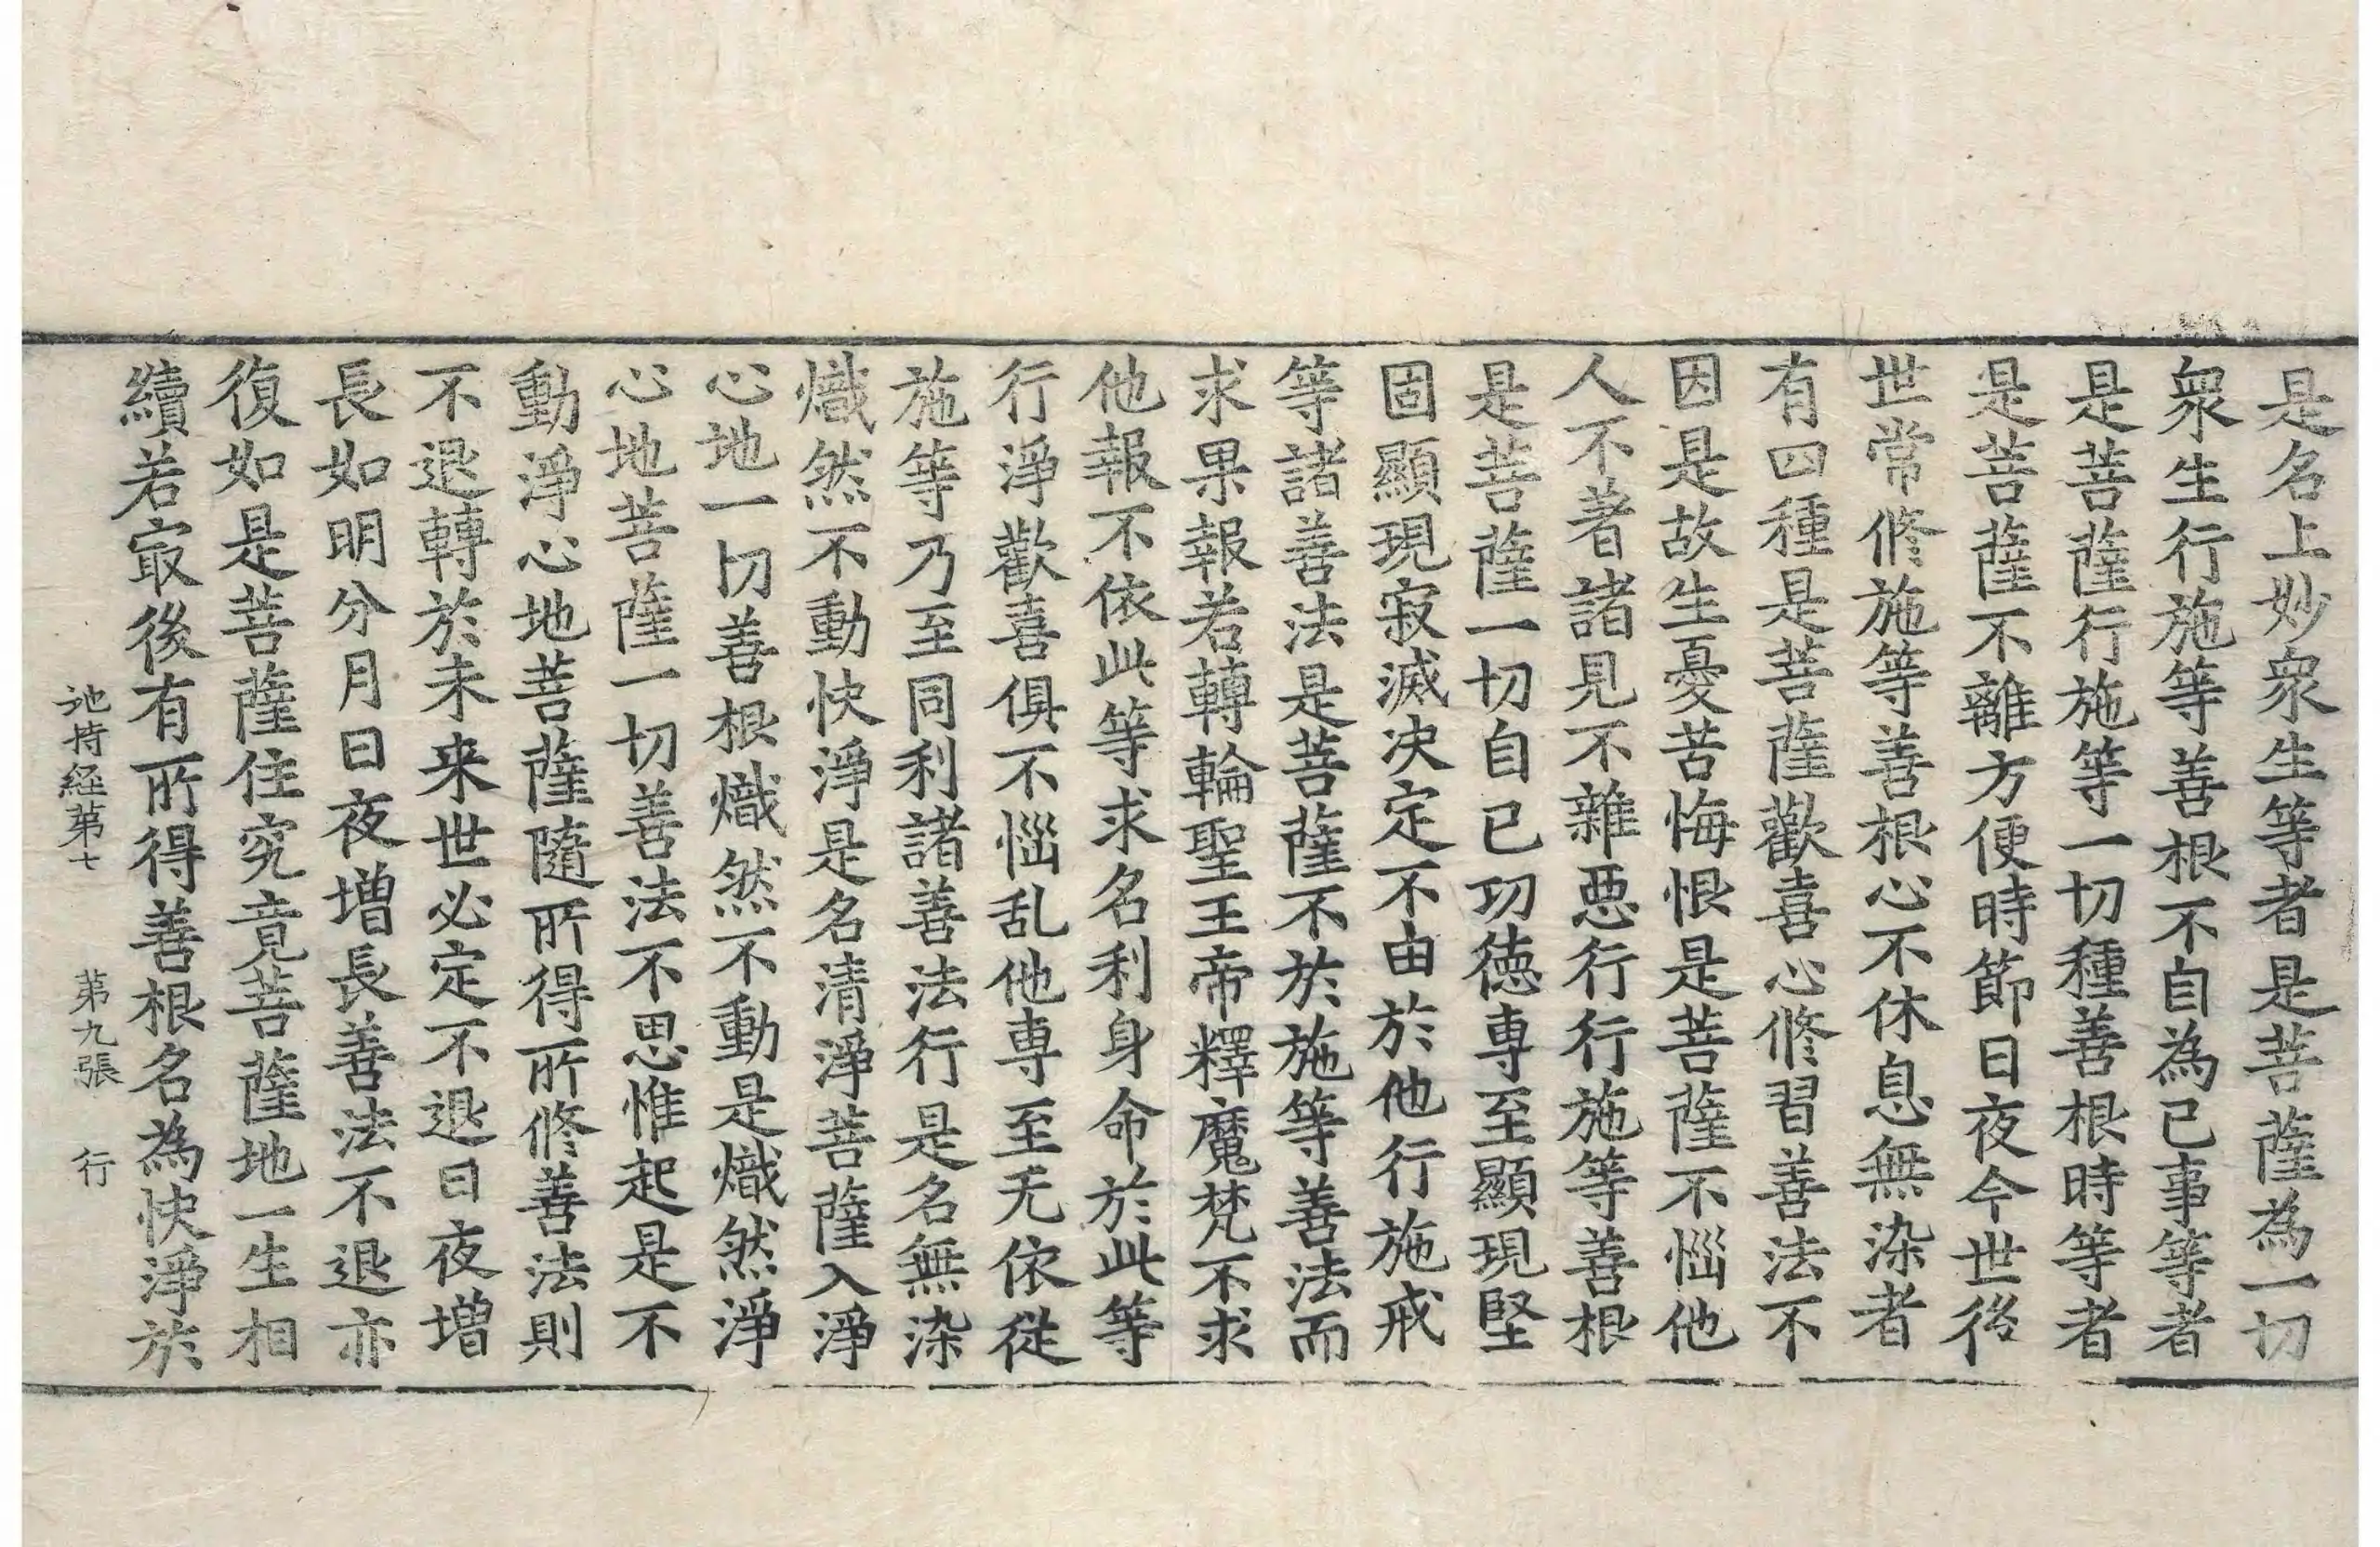 是名上妙衆生等者是菩薩為一切
衆生行施等善根不自為己事等者
是菩薩行施等一切種善根時等者
是菩薩不離方便時節日夜今世後
世常修施等善根心不休息無染者
有四種是菩薩歡喜心修習善法不
因是故生憂苦悔恨是菩薩不惱他
人不著諸見不雜惡行行施等善根
是菩薩一切自已功徳専至顯現堅
固顯現寂滅决定不由於他行施戒
等諸善法是菩薩不於施等善法而
求果報若轉輪聖王帝釋魔梵不求
他報不依此等求名利身命於此等
行淨歡喜俱不惱乱他専至无依從
施等乃至同利諸善法行是名無染
熾然不動快淨是名清淨菩薩入淨
心地一切善根熾然不動是熾然淨
心地菩薩一切善法不思惟起是不
動淨心地菩薩隨所得所修善法則
不退轉於未来世必定不退日夜増
長如明分月日夜増長善法不退亦
復如是菩薩住究竟菩薩地一生相
續若㝡後有所得善根名為快淨於
地持経苐七 苐九張 行